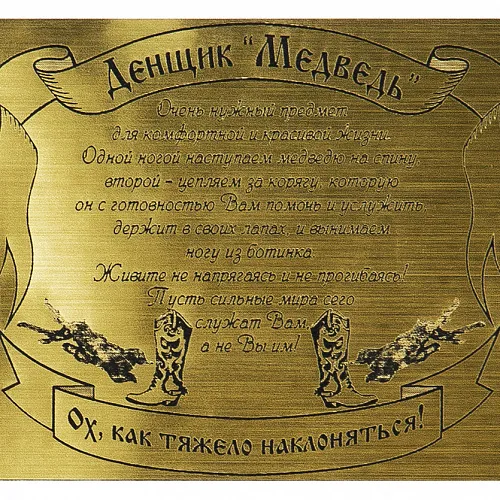 Денщик "Медведь"
Очень нужный предмет
для комфортной и красивой жизни.
Одной ногой наступаем медведю на спину,
второй - цепляем за корягу, которую
он с готовностью Вам помочь и услужить,
держит в своих лапах, и вынимаем
ногу из ботинка.
Живите не напрягаясь и не прогибаясь!
Пусть сильные мира сего
служат Вам,
а не Вы им!
Ох, как тяжело наклоняться!